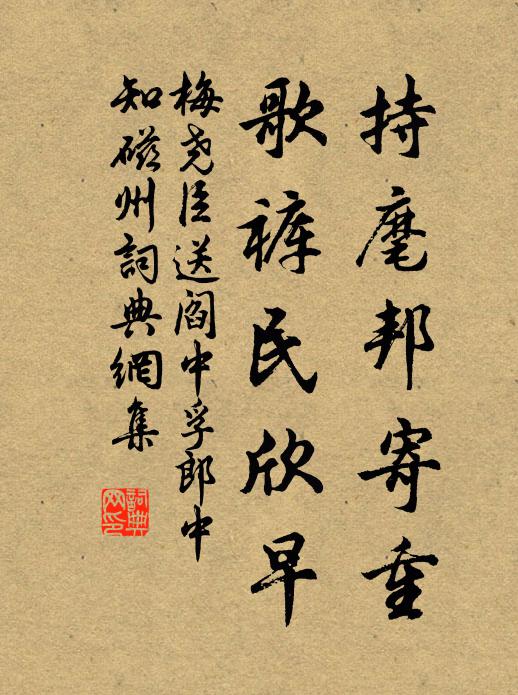 持麾邦寄重
歌裤民欣早
梅尧臣送閻中孚郎中
知磁州詞典網集
詞典網印